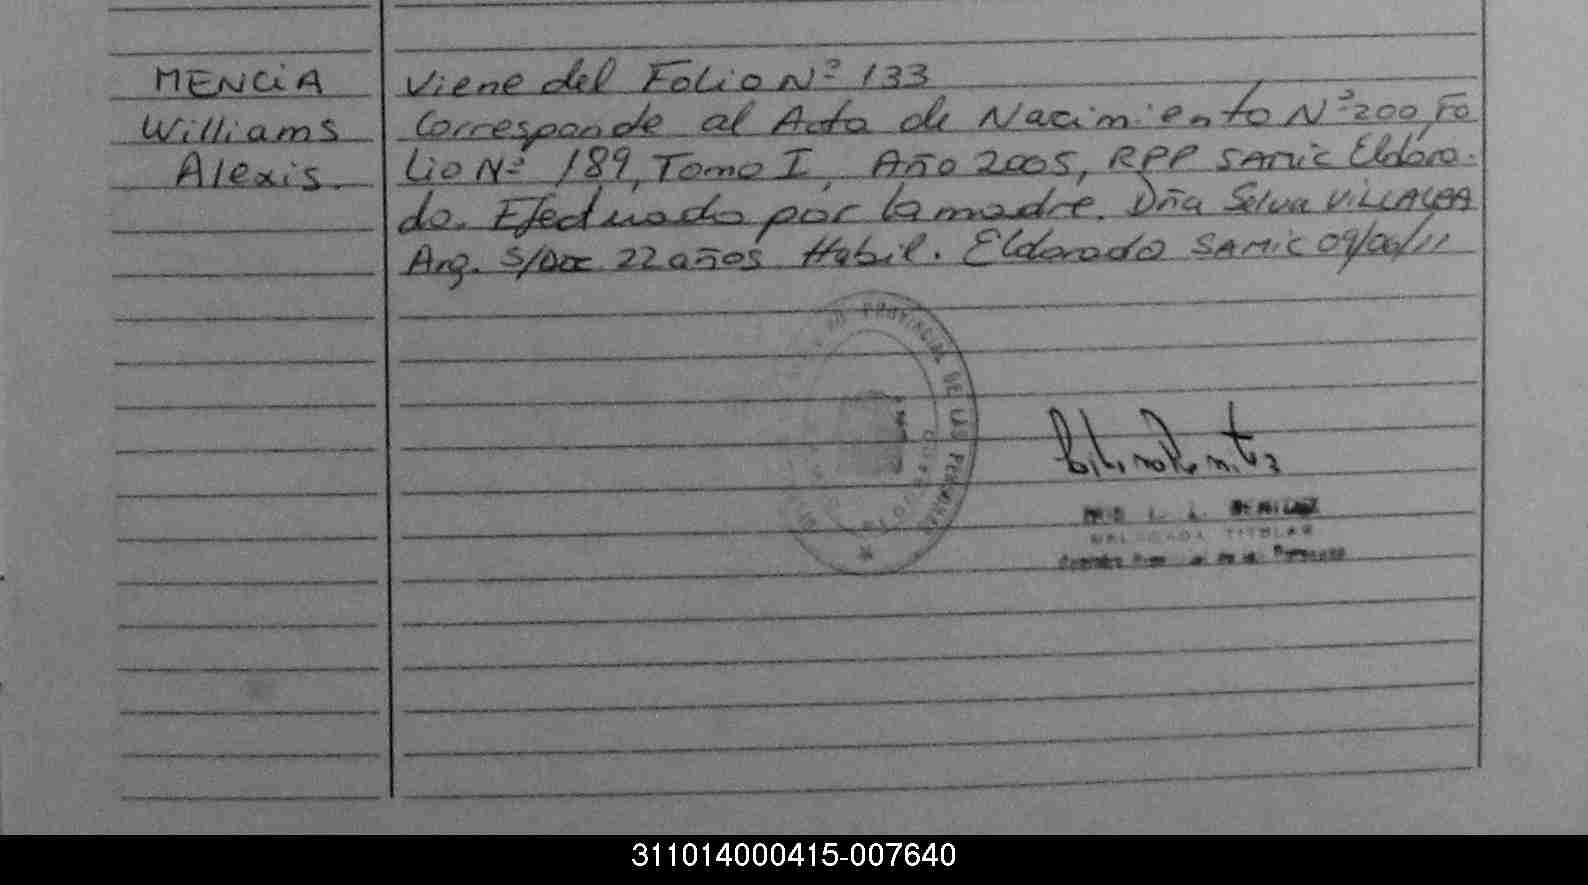 MENCIA
Williams
Alexis.
Viene del Folio Nº 133
Corresponde al Acta de Nacimiento Nº 200, Fo
lio Nº 189, Tomo I, Año 2005, RPP SAMIC Eldora-
do. Efectuado por la madre. Dña Selva VILLALBA
Arg. S/Doc. 22 años Habil. Eldorado SAMIC 09/06/11
PROVINCIAL DE LAS PERSONAS
TITULAR
311014000415-007640